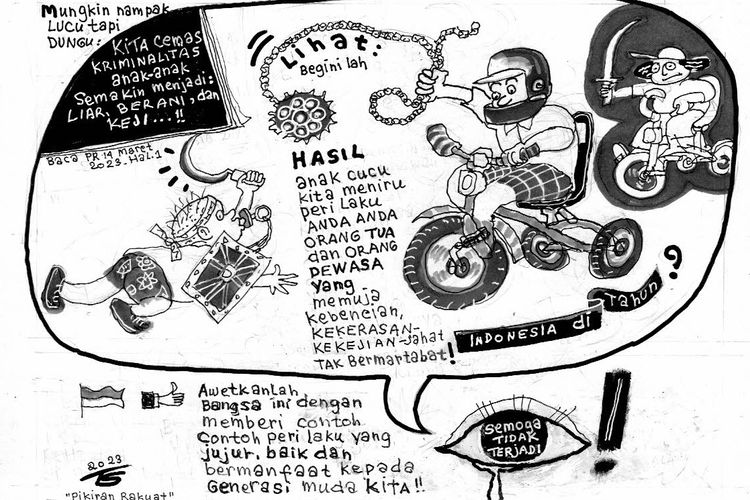 Mungkin nampak
LUCU tapi
DUNGU:
KITA cemas
KRIMINALITAS
anak-anak
Semakin menjadi:
LIAR, BERANI, dan
KEJI...!!
Baca PR 14 Maret
2023. HAL.1
Lihat:
Begini lah
HASIL
anak cucu
kita meniru
peri laku
ANDA ANDA
ORANG TUA
dan ORANG
DEWASA
yang
memuja
kebencian,
KEKERASAN-
KEKEJIAN-Jahat
TAK Bermartabat!
INDONESIA di Tahun ?
Awetkanlah
Bangsa ini dengan
memberi contoh
contoh peri laku yang
jujur, baik dan
bermanfaat kepada
Generasi muda KITA!!
Semoga
TIDAK
TERJADI
!
2023
TS
"Pikiran Rakyat"